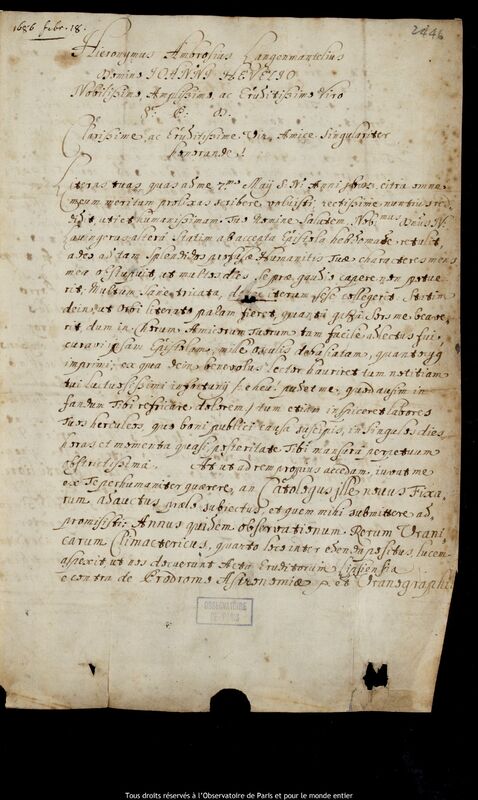 1686 febr. 18.
2446
Hieronymus Ambrosius Langenmantelius
Domino IOANNI HEVELIO
Nobilissimo Amplissimo ac Eruditissimo Viro
S. P. D.
Clarissime ac Eruditissime Vir, Amice Singulariter
honorande!
Literas tuas quas ad me 7mo Maij S. N. Anni citra omne
meum meritum prolixas scribere voluisti, rectissime nuntius red
didit, uti et humanissimam Tuo Nomine Salutem, Nob.mus
altera statim ab accepta Epistola hebdomade retulit,
adeo ad tam splendidos Humanitis Tuæ characteres mens
mea obstupuit, ut multos dies se præ gaudio capere non potue
rit, multum sane iterum sese collegerit. Statim
deinde ut Orbi literato palam fieret, quanti Sors me beave
rit, dum in Tuorum tam facile adlectus fui,
curavi ipsam Epistolam, mille osculis
imprimi, ex qua dein benevolus lector hauriret tam notitiam
tui luctuosissimi infortunij (heheu pudet me, quod ausim in
fandum Tibi refricare dolorem) tum etiam inspiceret labores
Tuos herculeos, quos boni publici causa suscipis, in singulos dies
horas et momenta quasi, posteritate Tibi mansura perpetuum
obstrictissima. At ut ad rem propius accedam, iuvat me
ex Te perhumaniter quærere, an Catalogus ille novus Fixa
rum adauctus prælo subiectus, et quem mihi submittere
promisisti: Annus quidem observationum Rerum Urani
carum Climactericus, quarto loco inter edenda positus, lucem
aspexit ut nos docuerunt Acta Eruditorum Lipsiensia
e contra de Prodromo Astronomiæ et Uranographia
OBSERVATOIRE
DE PARIS
Tous droits réservés à l'Observatoire de Paris et pour le monde entier